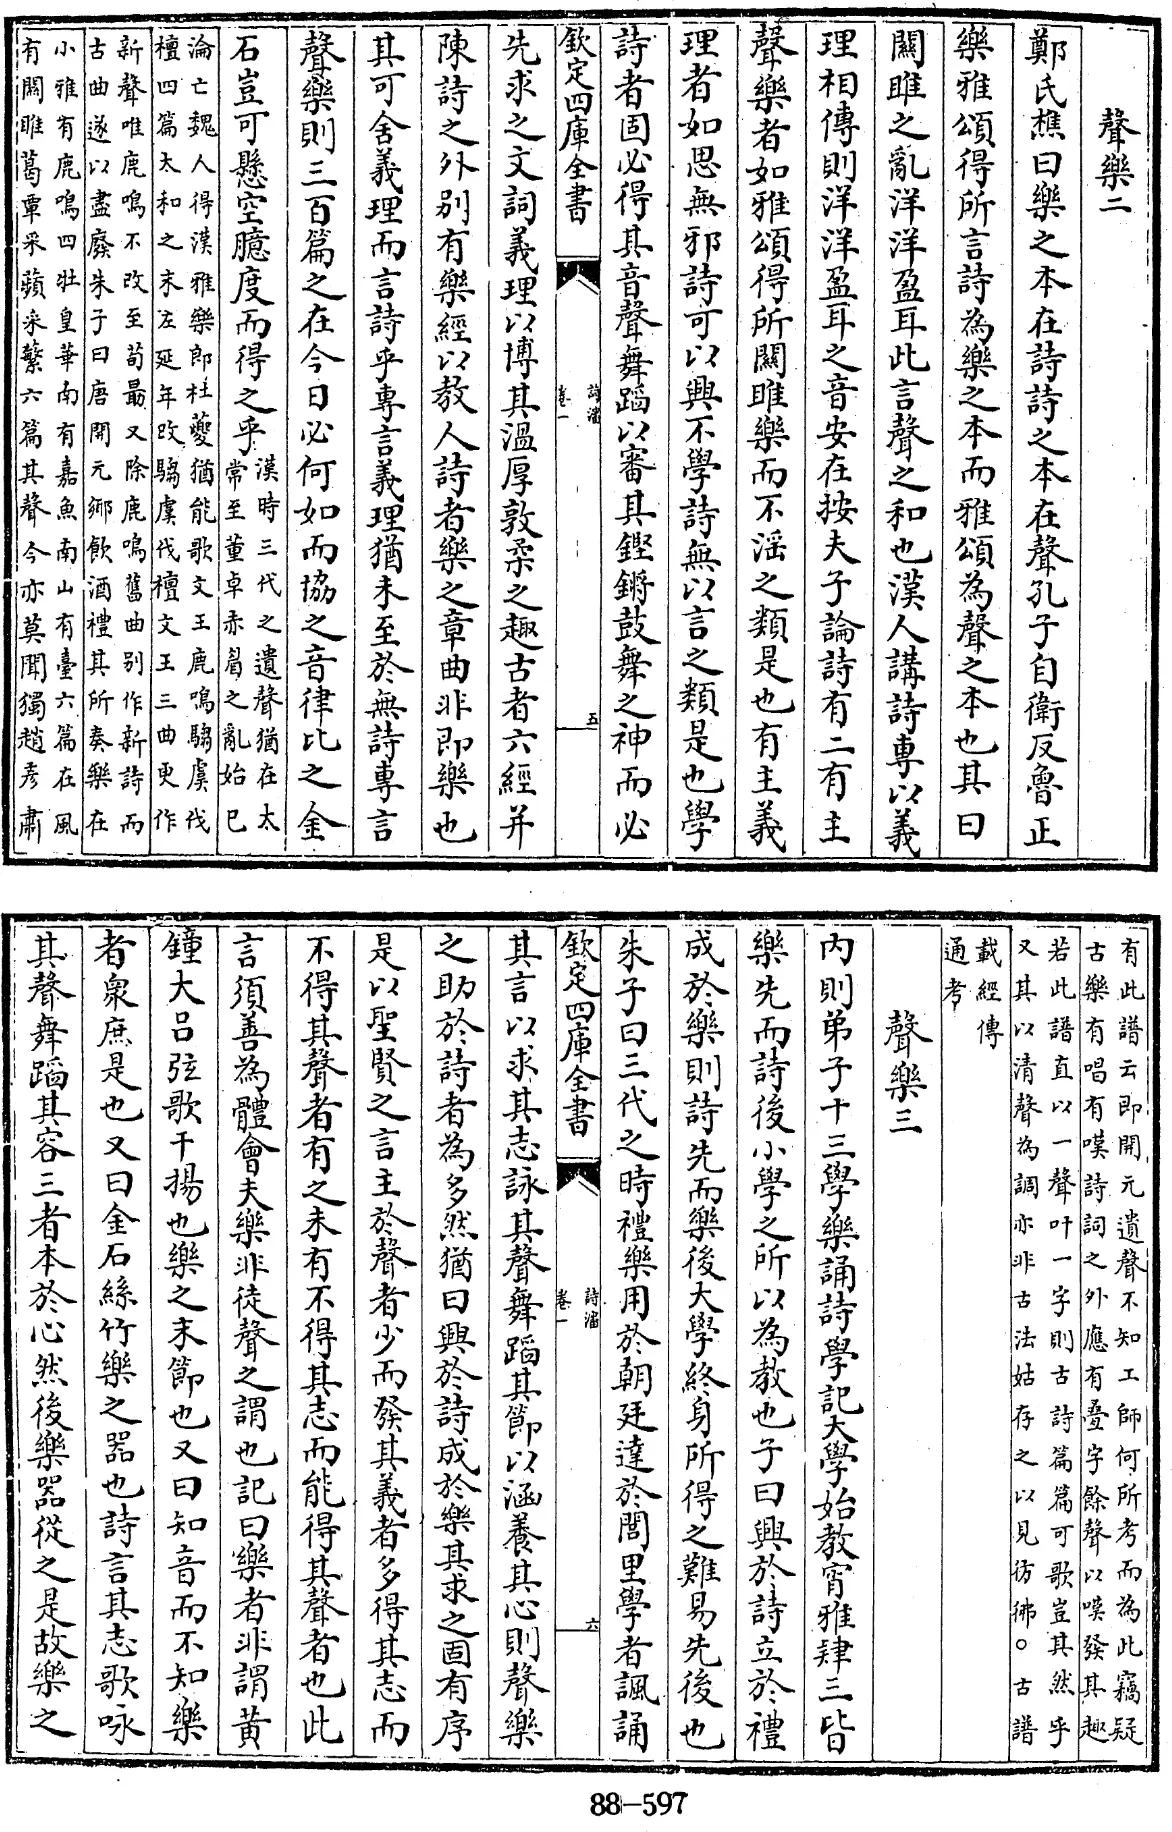 聲樂二
鄭氏樵曰樂之本在詩詩之本在聲孔子自衛反魯正
樂雅頌得所言詩為樂之本而雅頌為聲之本也其曰
關雎之亂洋洋盈耳此言聲之和也漢人講詩專以義
理相傳則洋洋盈耳之音安在按夫子論詩有二有主
聲樂者如雅頌得所關雎樂而不淫之類是也有主義
理者如思無邪詩可以興不學詩無以言之類是也學
詩者固必得其音聲舞蹈以審其鏗鏘鼓舞之神而必
欽定四庫全書
詩瀋
卷一
五
先求之文詞義理以博其溫厚敦柔之趣古者六經并
陳詩之外別有樂經以教人詩者樂之章曲非即樂也
其可舍義理而言詩乎專言義理猶未至於無詩專言
聲樂則三百篇之在今日必何如而協之音律比之金
石豈可懸空臆度而得之乎
漢時三代之遺聲猶在太
常至董卓赤眉之亂始已
淪亡魏人得漢雅樂郎杜夔猶能歌文王鹿鳴騶虞伐
檀四篇太和之末左延年改騶虞伐檀文王三曲更作
新聲唯鹿鳴不改至荀最又除鹿鳴舊曲別作新詩而
古曲遂以盡廢朱子曰唐開元鄉飲酒禮其所奏樂在
小雅有鹿鳴四牡皇華南有嘉魚南山有臺六篇在風
有關雎葛覃采蘋采蘩六篇其聲今亦莫聞獨趙彥肅
有此譜云即開元遺聲不知工師何所考而為此竊疑
古樂有唱有嘆詩詞之外應有疊字餘聲以嘆發其趣
若此譜直以一聲叶一字則古詩篇篇可歌豈其然乎
又其以清聲為調亦非古法姑存之以見彷彿。古譜
載經傳
通考
聲樂三
內則弟子十三學樂誦詩學記大學始教宵雅肄三皆
樂先而詩後小學之所以為教也子曰興於詩立於禮
成於樂則詩先而樂後大學終身所得之難易先後也
朱子曰三代之時禮樂用於朝廷達於閭里學者諷誦
欽定四庫全書
詩瀋
卷一
六
其言以求其志詠其聲舞蹈其節以涵養其心則聲樂
之助於詩者為多然猶曰興於詩成於樂其求之固有序
是以聖賢之言主於聲者少而發其義者多得其志而
不得其聲者有之未有不得其志而能得其聲者也此
言須善為體會夫樂非徒聲之謂也記曰樂者非謂黃
鐘大呂弦歌干揚也樂之末節也又曰知音而不知樂
者衆庶是也又曰金石絲竹樂之器也詩言其志歌咏
其聲舞蹈其容三者本於心然後樂器從之是故樂之
88-597